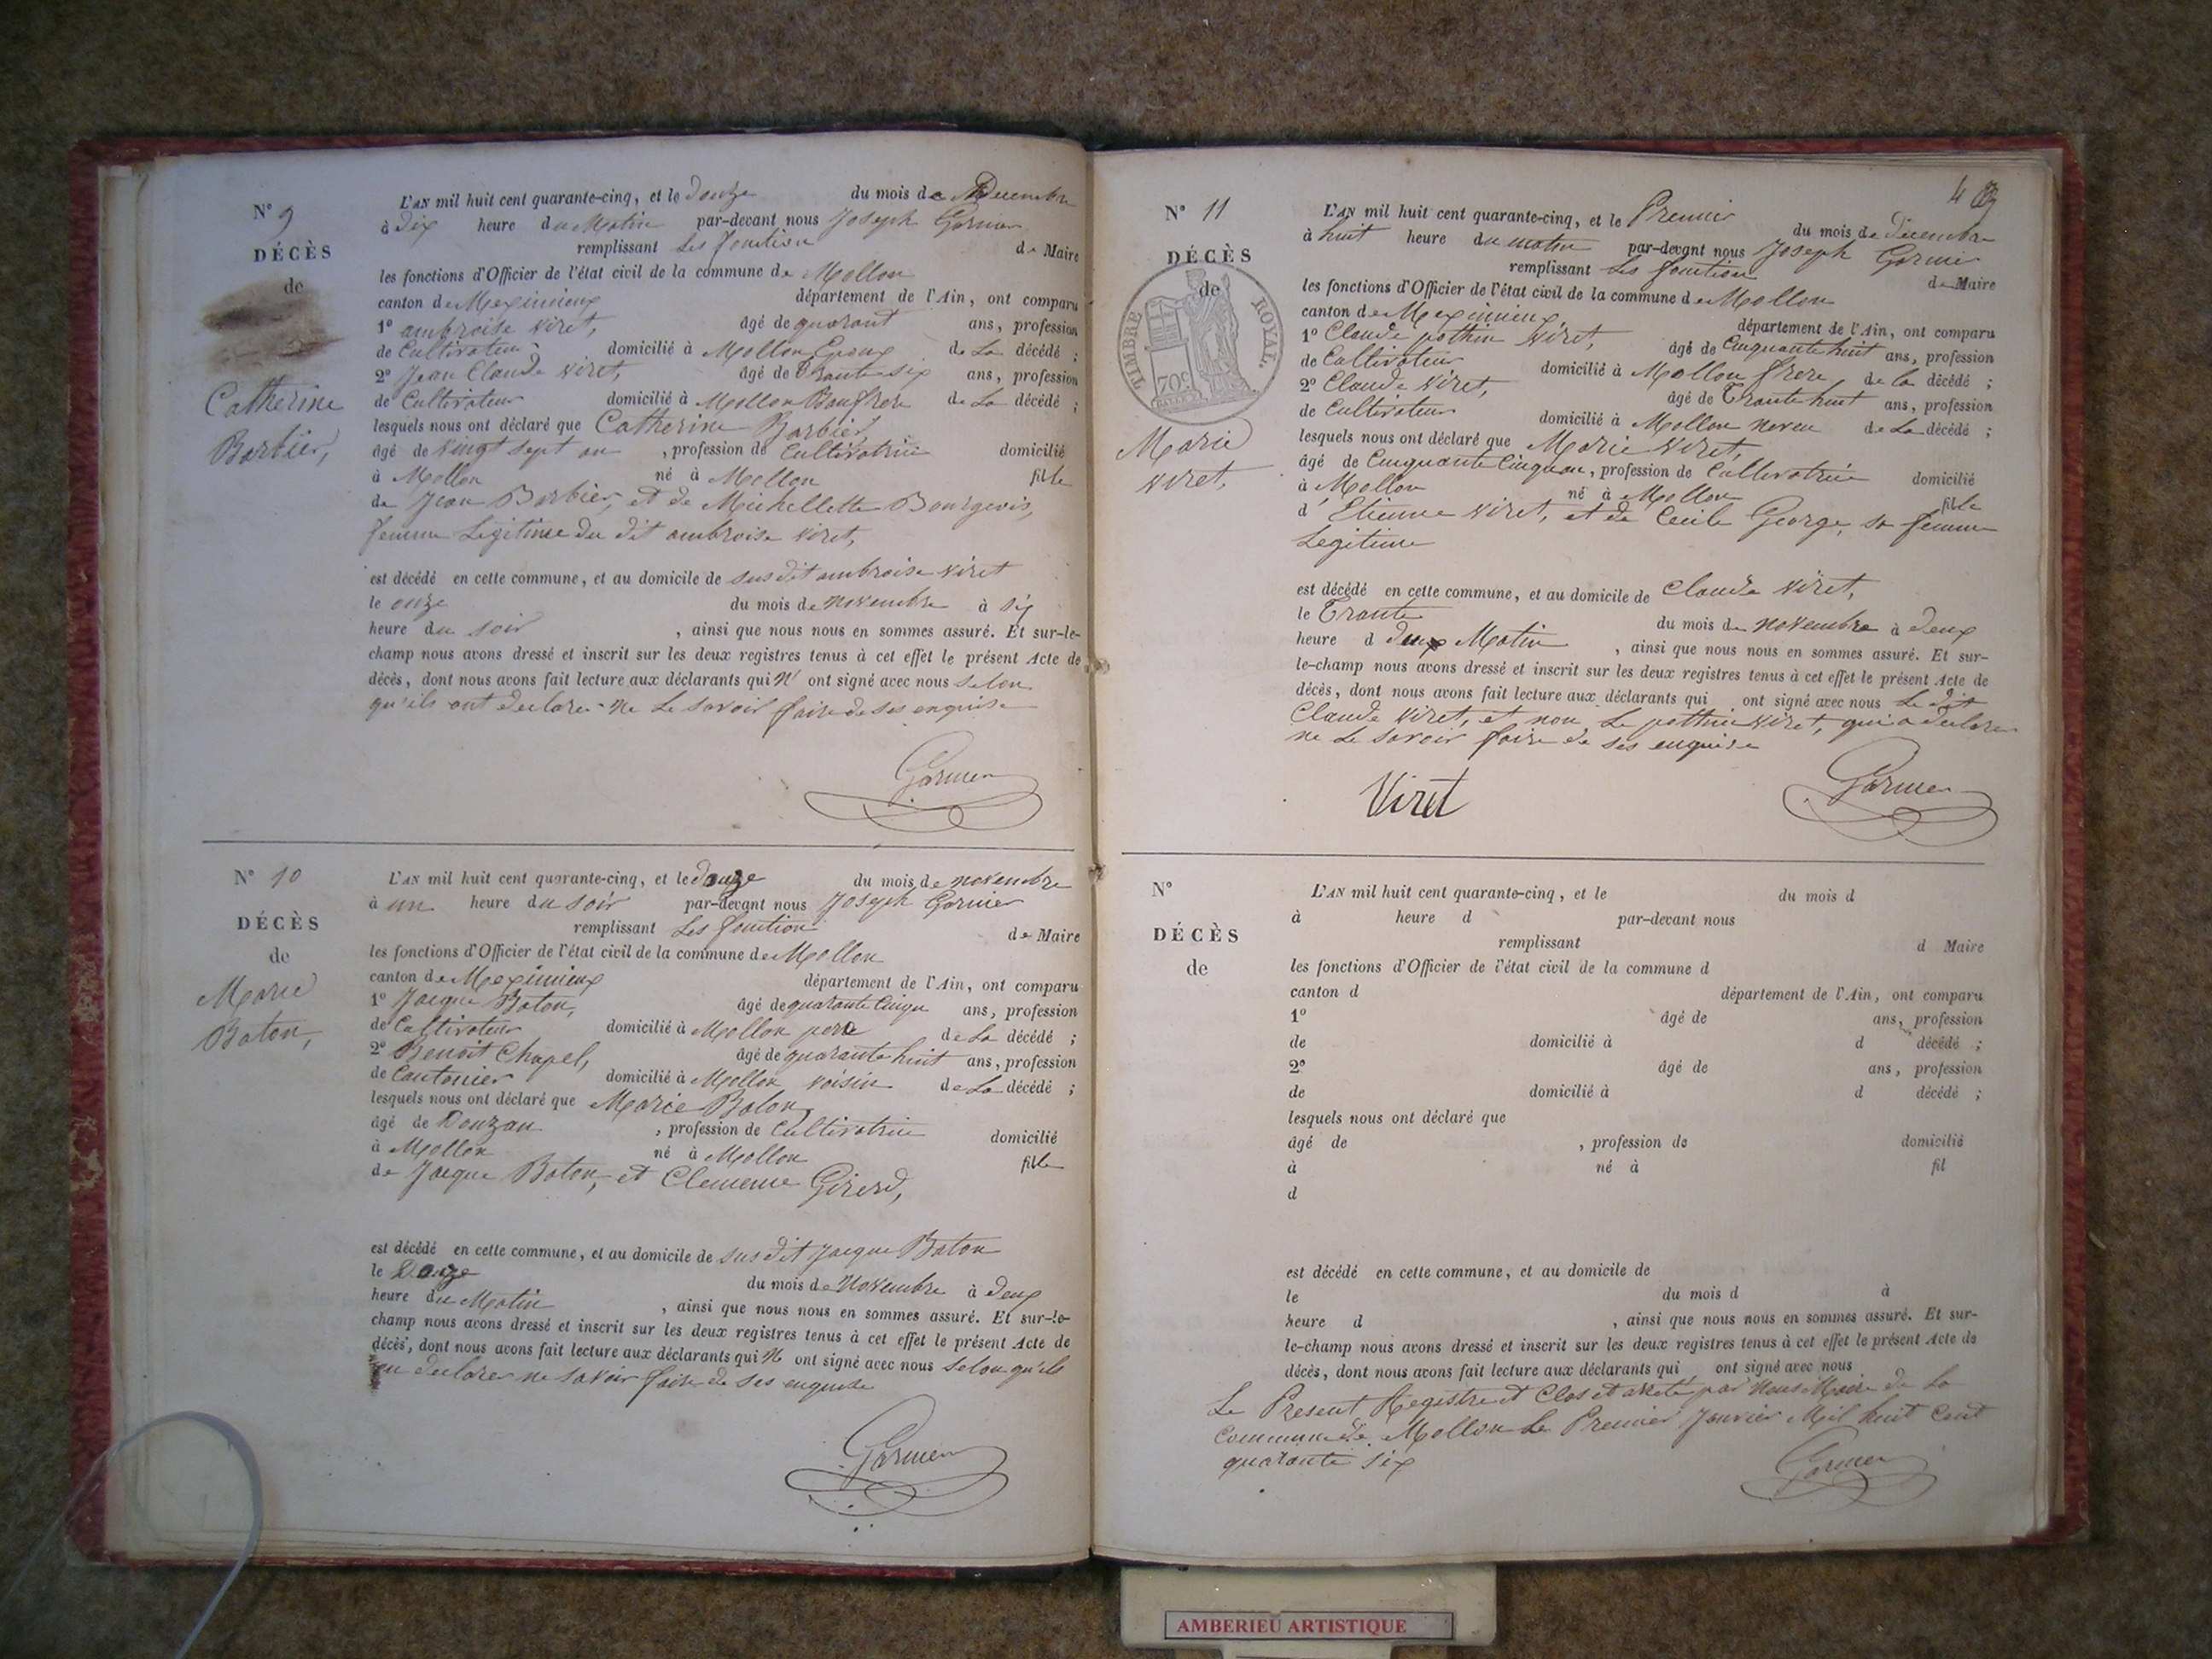 N° 9
DÉCÈS
de
Catherine
Barbier,
L'AN mil huit cent quarante-cinq, et le douze du mois de Decembre
à dix heure du Matin par-devant nous Joseph Garnier
remplissant les fonction de Maire
les fonctions d'Officier de l'état civil de la commune de Mollon
canton de Meximieux département de l'Ain, ont comparu
1° ambroise Viret, âgé de quarant ans, profession
de Cultivateur domicilié à Mollon Epoux de La décédé ;
2° Jean Claude Viret, âgé de Trante six ans, profession
de Cultivateur domicilié à Mollon Baufrere de La décédé ;
lesquels nous ont déclaré que Catherine Barbier,
âgé de vingt sept an , profession de Cultivatrice domicilié
à Mollon né à Mollon fille
de Jean Barbier, et de Michellette Bourgeois,
femme Legitime du dit ambroise Viret,
est décédé en cette commune, et au domicile de susdit ambroise Viret
le onze du mois de Novembre à six
heure du soir , ainsi que nous nous en sommes assuré. Et sur-le-
champ nous avons dressé et inscrit sur les deux registres tenus à cet effet le présent Acte de
décès, dont nous avons fait lecture aux déclarants qui N' ont signé avec nous selon
qu'ils ont declarer ne Le savoir faire de ses enquise
Garnier
N° 10
DÉCÈS
de
Marie
Baton,
L'AN mil huit cent quarante-cinq, et le douze du mois de novembre
à un heure du soir par-devant nous Joseph Garnier
remplissant Les fonction de Maire
les fonctions d'Officier de l'état civil de la commune de Mollon
canton de Meximieux département de l'Ain, ont comparu
1° Jacque Baton, âgé de quarante Cinque ans, profession
de Cultivateur domicilié à Mollon pere de La décédé ;
2° Benoit Chapel, âgé de quarante huit ans, profession
de Cantonier domicilié à Mollon voisin de La décédé ;
lesquels nous ont déclaré que Marie Baton
âgé de Douzan , profession de Cultivatrice domicilié
à Mollon né à Mollon fille
de Jacque Baton, et Clemence Girerd,
est décédé en cette commune, et au domicile de susdit Jacque Baton
le Douze du mois de Novembre à deux
heure du Matin , ainsi que nous nous en sommes assuré. Et sur-le-
champ nous avons dressé et inscrit sur les deux registres tenus à cet effet le présent Acte de
décès, dont nous avons fait lecture aux déclarants qui N' ont signé avec nous selon qu'ils
on declarer ne savoir faire de ses enquise
Garnier
N° 11
DÉCÈS
de
TIMBRE ROYAL.
70c
Marie
Viret,
L'AN mil huit cent quarante-cinq, et le Premier du mois de décembre
à huit heure du matin par-devant nous Joseph Garnier
remplissant Les fonction de Maire
les fonctions d'Officier de l'état civil de la commune de Mollon
canton de Meximieux département de l'Ain, ont comparu
1° Claude pothin Viret, âgé de Cinquante huit ans, profession
de Cultivateur domicilié à Mollon frere de la décédé ;
2° Claude Viret, âgé de Trante huit ans, profession
de Cultivateur domicilié à Mollon neveu de La décédé ;
lesquels nous ont déclaré que Marie Viret,
âgé de Cinquante Cinque an, profession de Cultivatrice domicilié
à Mollon né à Mollon fille
d' Etienne Viret, et de Cecile George, sa femme
Legitime
est décédé en cette commune, et au domicile de Claude Viret,
le Trante du mois de Novembre à deux
heure d Matin , ainsi que nous nous en sommes assuré. Et sur-
le-champ nous avons dressé et inscrit sur les deux registres tenus à cet effet le présent Acte de
décès, dont nous avons fait lecture aux déclarants qui ont signé avec nous Le dit
Claude Viret, et non Le pothin Viret, qui a declarer
ne Le savoir faire de ses enquise
Viret Garnier
N°
DÉCÈS
de
L'AN mil huit cent quarante-cinq, et le du mois d
à heure d par-devant nous
remplissant d Maire
les fonctions d'Officier de l'état civil de la commune d
canton d département de l'Ain, ont comparu
1° âgé de ans, profession
de domicilié à d décédé ;
2° âgé de ans, profession
de domicilié à d décédé ;
lesquels nous ont déclaré que
âgé de , profession de domicilié
à né à fil
d
est décédé en cette commune, et au domicile de
le du mois d à
heure d , ainsi que nous nous en sommes assuré. Et sur-
le-champ nous avons dressé et inscrit sur les deux registres tenus à cet effet le présent Acte de
décès, dont nous avons fait lecture aux déclarants qui ont signé avec nous
Le Present Registre et Clos et arreté par Nous Maire de La
Commune de Mollon Le Premier Janvier Mil huit Cent
quarante six
Garnier
AMBERIEU ARTISTIQUE